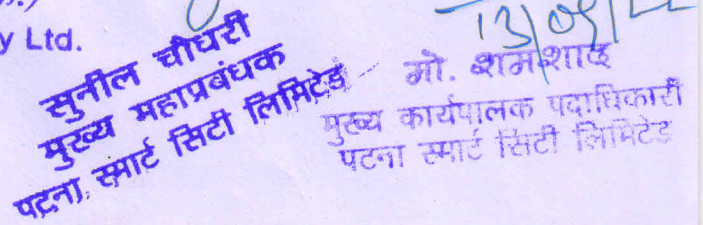 y Ltd.
13/09/22
सुनील चौधरी
मुख्य महाप्रबंधक
पटना स्मार्ट सिटी लिमिटेड
मो. शमशाद
मुख्य कार्यपालक पदाधिकारी
पटना स्मार्ट सिटी लिमिटेड